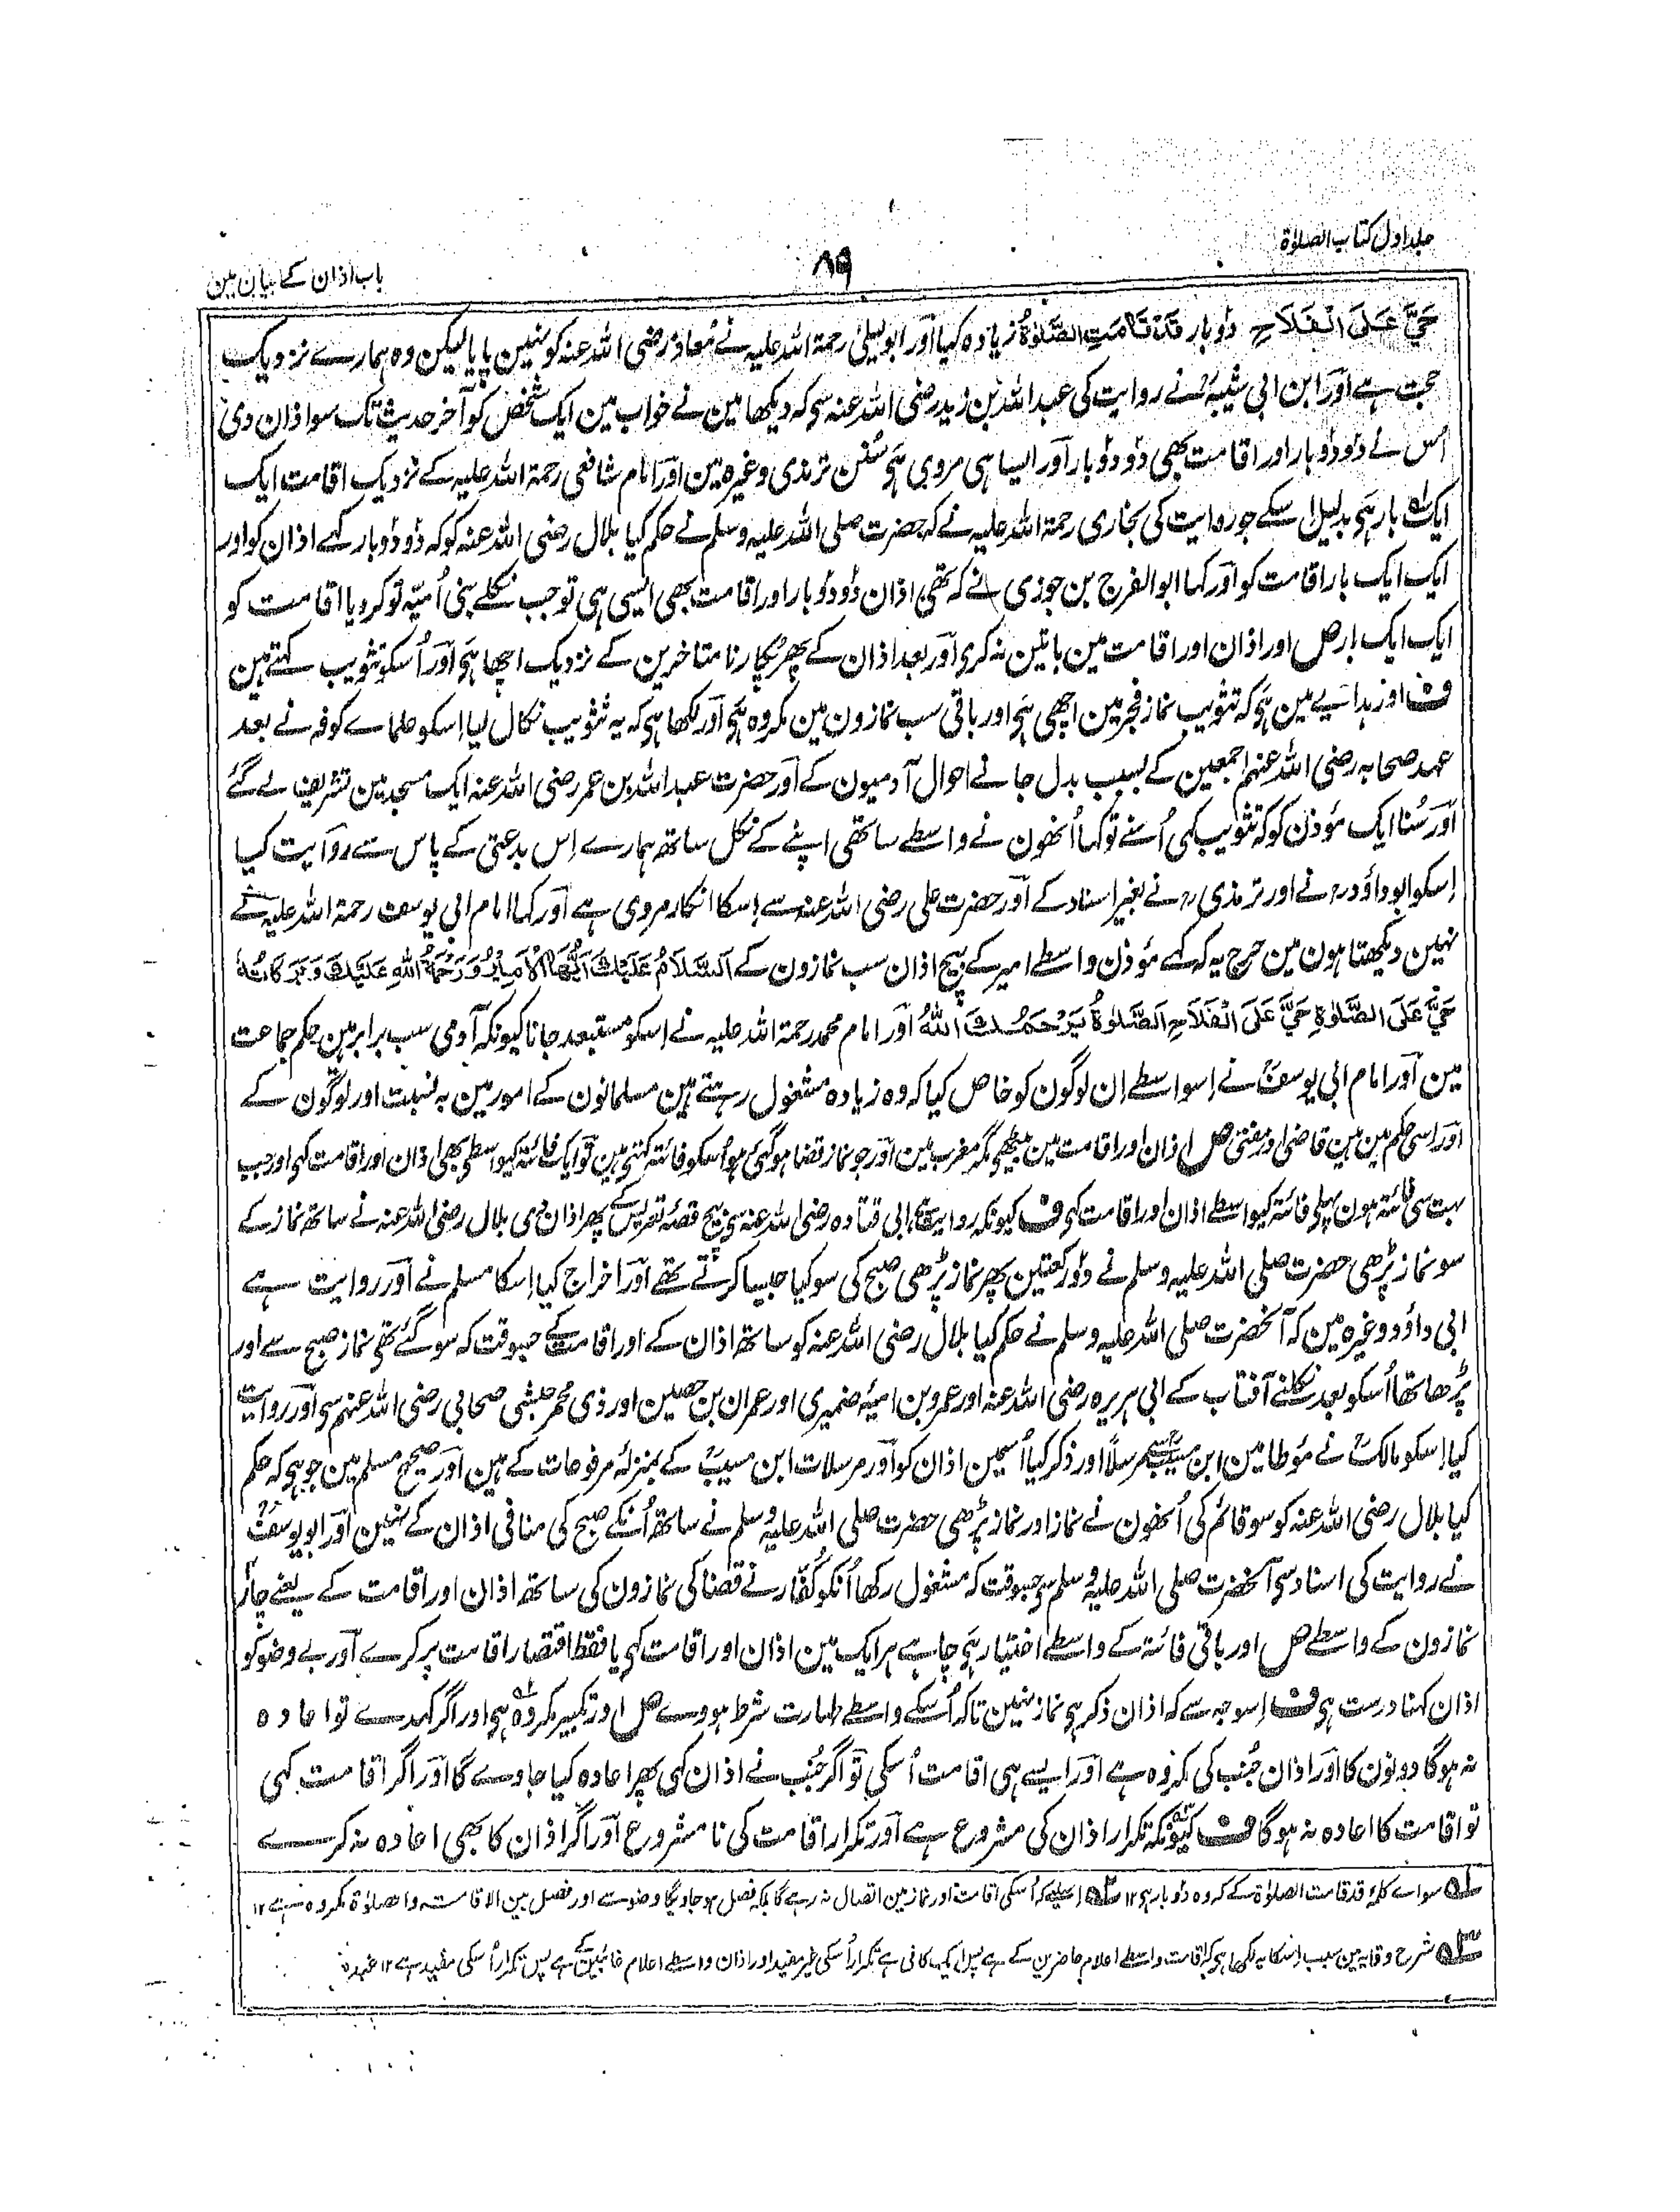 جلد اول کتاب الصلوٰۃ
۸۹
باب اذان کے بیان مین
حَيَّ عَلَى الْفَلَاحِ دوبار قَدْ قَامَتِ الصَّلٰوةُ زیادہ کیا اور ابولیلیٰ رحمۃ اللہ علیہ نے مُعاذ رضی اللہ عنہ کو نہین پایا لیکن وہ ہمارے نزدیک
حجت ہے اور ابن ابی شیبہ نے روایت کی عبداللہ بن زید رضی اللہ عنہ سی کہ دیکھا مین نے خواب مین ایک شخص کو آخر حدیث تک سو اذان دی
اُس نے دو دو بار اور اقامت بھی دو دو بار اور ایسا ہی مروی ہی سُنن ترمذی وغیرہ مین اور امام شافعی رحمۃ اللہ علیہ کے نزدیک اقامت ایک
ایک بار ہی بدلیل اسکے جو روایت کی بخاری رحمۃ اللہ علیہ نے کہ حضرت صلی اللہ علیہ وسلم نے حکم کیا بلال رضی اللہ عنہ کو کہ دو دو بار کہے اذان کو اور
ایک ایک بار اقامت کو اور کہا ابوالفرج بن جوزی نے کہ تھی اذان دو دو بار اور اقامت بھی ایسی ہی تو جب نکلے بنی اُمیّہ تو کر دیا اقامت کو
ایک ایک بار ص اور اذان اور اقامت مین باتین نہ کری اور بعد اذان کے پھر پُکارنا متاخرین کے نزدیک اچھا ہی اور اُسکو تثویب کہتے ہین
ف اور ہدایے مین ہی کہ تثویب نماز فجر مین اچھی ہی اور باقی سب نمازون مین مکروہ ہی اور لکھا ہی کہ یہ تثویب نکال لیا اِسکو علماے کوفہ نے بعد
عہد صحابہ رضی اللہ عنہم اجمعین کے بسبب بدل جانے احوال آدمیون کے اور حضرت عبداللہ بن عمر رضی اللہ عنہ ایک مسجد مین تشریف لے گئے
اور سُنا ایک مؤذن کو کہ تثویب کہی اُسنے تو کہا اُنھون نے واسطے ساتھی اپنے کے نکل ساتھ ہمارے اِس بدعتی کے پاس سے روایت کیا
اِسکو ابوداؤدؒ نے اور ترمذیؒ نے بغیر اسناد کے اور حضرت علی رضی اللہ عنہ سے اِسکا انکار مروی ہے اور کہا امام ابی یوسف رحمۃ اللہ علیہ نے
نہین دیکھتا ہون مین حرج یہ کہ کہے مؤذن واسطے امیر کے بیچ اذان سب نمازون کے اَلسَّلَامُ عَلَيْكَ اَيُّهَا الْاَمِيْرُ وَرَحْمَةُ اللّٰهِ عَلَيْكَ وَبَرَكَاتُهٗ
حَيَّ عَلَى الصَّلٰوةِ حَيَّ عَلَى الْفَلَاحِ اَلصَّلٰوةُ يَرْحَمُكَ اللّٰهُ اور امام محمد رحمۃ اللہ علیہ نے اِسکو مستبعد جانا کیونکہ آدمی سب برابر ہین حکم جماعت
مین اور امام ابی یوسفؒ نے اِسواسطے اِن لوگون کو خاص کیا کہ وہ زیادہ مشغول رہتے ہین مسلمانون کے امور مین بہ نسبت اور لوگون کے
اور اسی حکم مین ہین قاضی اور مفتی ص اذان اور اقامت مین بیٹھی مگر مغرب مین اور جو نماز قضا ہو گئی ہو اُسکو فائتہ کہتی ہین تو ایک فائتہ کیواسطی بھی اذان اور اقامت کہی اور جب
بہت سی فائتہ ہون پہلی فائتہ کیواسطے اذان اور اقامت کہی ف کیونکہ روایت ہی ابی قتادہ رضی اللہ عنہ سی بیچ قصّہ تعریس کے پھر اذان دی بلال رضی اللہ عنہ نے ساتھ نماز کے
سو نماز پڑھی حضرت صلی اللہ علیہ وسلم نے دو رکعتین پھر نماز پڑھی صبح کی سو کیا جیسا کرتے تھے اور اخراج کیا اِسکا مسلم نے اور روایت ہے
ابی داؤد وغیرہ مین کہ آنحضرت صلی اللہ علیہ وسلم نے حکم کیا بلال رضی اللہ عنہ کو ساتھ اذان کے اور اقامت کے جسوقت کہ سو گئے تھی نماز صبح سے اور
پڑھا تھا اُسکو بعد نکلنے آفتاب کے ابی ہریرہ رضی اللہ عنہ اور عمرو بن امیّہ ضمیری اور عمران بن حصین اور ذی مخمر حبشی صحابی رضی اللہ عنہم سی اور روایت
کیا اِسکو مالکؒ نے مؤطا مین ابن مسیّب سے مرسلًا اور ذکر کیا اُسمین اذان کو اور مرسلات ابن مسیبؒ کے بمنزلہ مرفوعات کے ہین اور صحیح مسلم مین جو ہی کہ حکم
کیا بلال رضی اللہ عنہ کو سو قائم کی اُنھون نے نماز اور نماز پڑھی حضرت صلی اللہ علیہ وسلم نے ساتھ اُنکے صبح کی منافی اذان کے نہین اور ابویوسفؒ
نے روایت کی اسناد سی آنحضرت صلی اللہ علیہ وسلم سی جسوقت کہ مشغول رکھا اُنکو کُفّار نے قضا کی نمازون کی ساتھ اذان اور اقامت کے یعنے چار
نمازون کے واسطے ص اور باقی فائتہ کے واسطے اختیار ہی چاہے ہر ایک مین اذان اور اقامت کہی یا فقط اقتصار اقامت پر کرے اور بے وضو کو
اذان کہنا درست ہی ف اِسوجہ سے کہ اذان ذکر ہی نماز نہین تاکہ اُسکے واسطے طہارت شرط ہووے ص اور تکبیر مکروہ ہی اور اگر کہدے تو اعادہ
نہ ہوگا دونون کا اور اذان جُنب کی مکروہ ہے اور ایسے ہی اقامت اُسکی تو اگر جُنب نے اذان کہی پھر اعادہ کیا جاوے گا اور اگر اقامت کہی
تو اقامت کا اعادہ نہ ہوگا ف کیونکہ تکرار اذان کی مشروع ہے اور تکرار اقامت کی نامشروع اور اگر اذان کا بھی اعادہ نہ کرے
۱ سواے کلمۂ قد قامت الصلوٰۃ کے کہ وہ دوبار ہی ۱۲ ۲ اِسلیے کہ اُسکی اقامت اور نماز مین اتصال نہ رہے گا بلکہ فصل ہو جاویگا وضو سے اور فصل بین الاقامت والصلوٰۃ مکروہ ہے ۱۲
۳ شرح وقایہ مین سبب اِسکا یہ لکھا ہی کہ اقامت واسطے اعلام حاضرین کے ہے پس ایک کافی ہے تکرار اُسکی غیر مفید اور اذان واسطے اعلام غائبین کے ہے پس تکرار اُسکی مفید ہے ۱۲ عمدہ